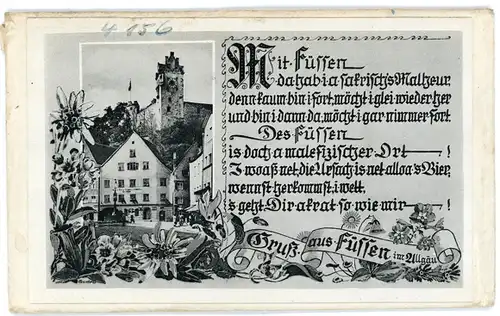 4 156
Mit Füssen
da hab i a sakrisch's Malheur
denn kaum bin i fort, möcht i glei wieder her
und bin i dann da, möcht i gar nimmer fort.
Des Füssen
is doch a malefizischer Ort — !
I woaß net, die Ursach is net alloa's Bier,
wennst herkommst, i wett,
s geht Dir akrat so wie mir — !
Gruß aus Füssen im Allgäu